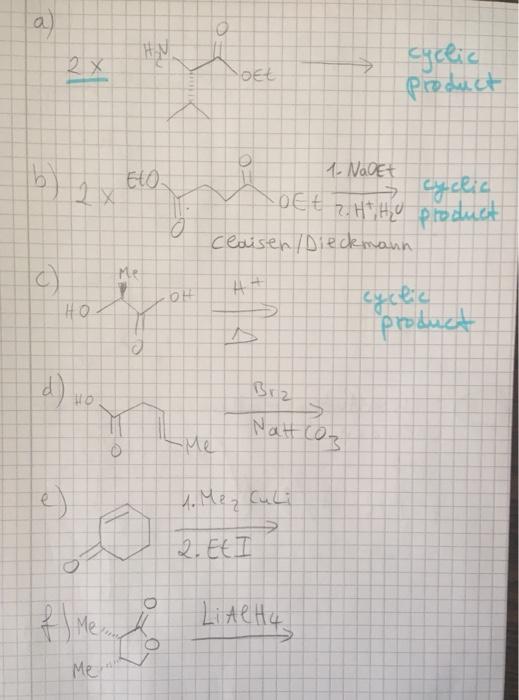 a)
2 x
H₂N
O
OEt
cyclic
product
b)
2 x
EtO
O
O
OEt
1. NaOEt
2. H⁺, H₂O
cyclic
product
Claisen/Dieckmann
c)
Me
HO
OH
O
H⁺
Δ
cyclic
product
d)
HO
O
Me
Br₂
NaHCO₃
e)
O
1. Me₂CuLi
2. EtI
f)
Me
Me
O
O
LiAlH₄